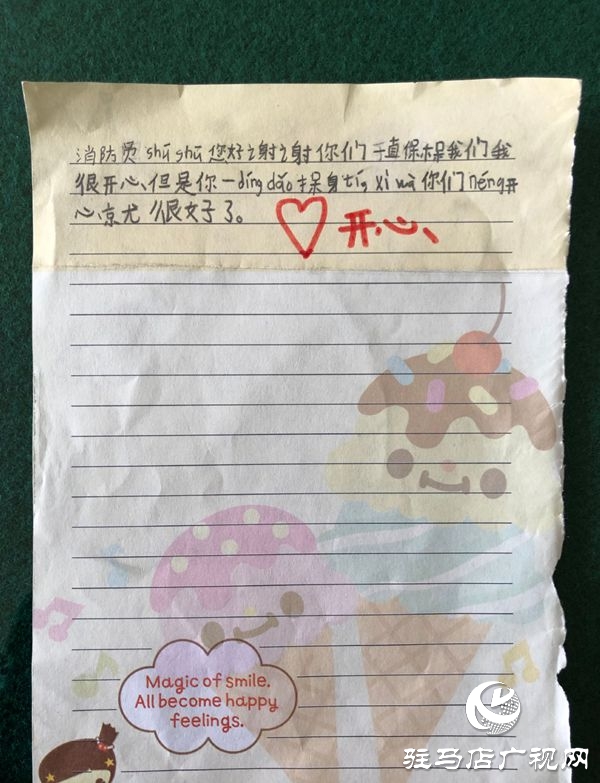 消防员 shū shū 您好谢谢你们于直保保我们我
很开心、但是你一dìng dǎo 保身 tǐ, xī wà 你们 néng 开
心京尤很好了。
开心、
Magic of smile.
All become happy
feelings.
驻马店广视网